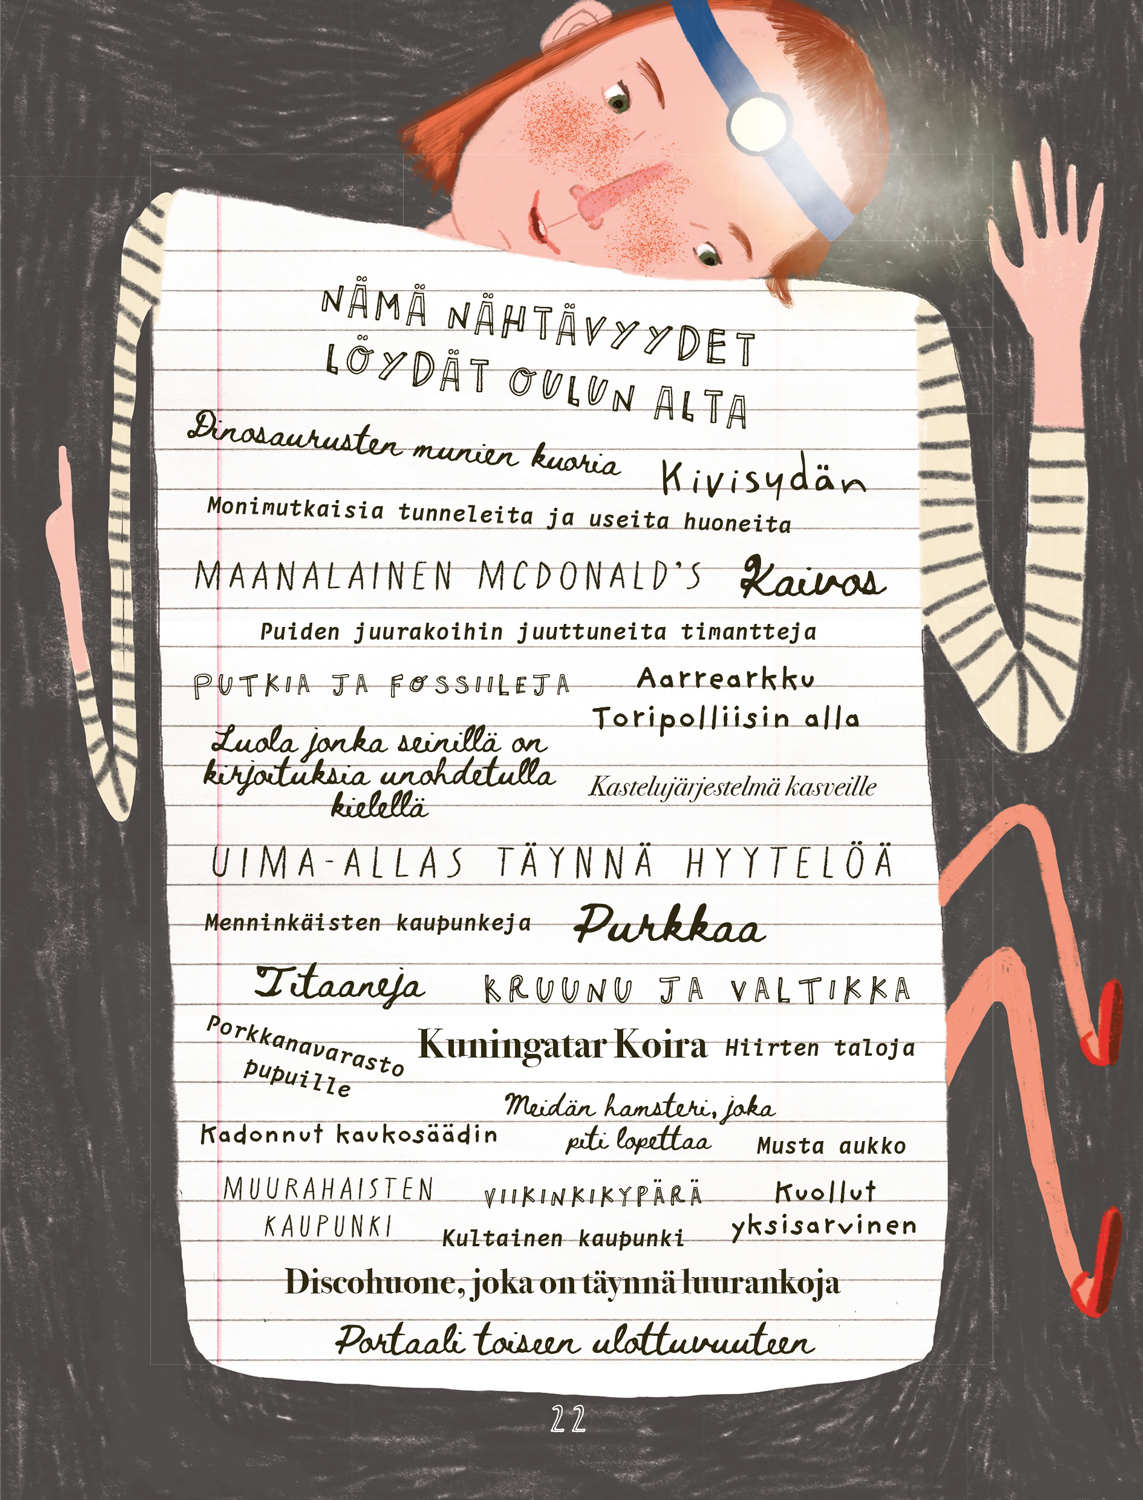 NÄMÄ NÄHTÄVYYDET
LÖYDÄT OULUN ALTA
Dinosaurusten munien kuoria
Kivisydän
Monimutkaisia tunneleita ja useita huoneita
MAANALAINEN MCDONALD'S
Kaivos
Puiden juurakoihin juuttuneita timantteja
PUTKIA JA FOSSIILEJA
Aarrearkku
Toripolliisin alla
Luola jonka seinillä on
kirjoituksia unohdetulla
kielellä
Kastelujärjestelmä kasveille
UIMA-ALLAS TÄYNNÄ HYYTELÖÄ
Menninkäisten kaupunkeja
Purkkaa
Titaaneja
KRUUNU JA VALTIKKA
Porkkanavarasto
pupuille
Kuningatar Koira
Hiirten taloja
Kadonnut kaukosäädin
Meidän hamsteri, joka
piti lopettaa
Musta aukko
MUURAHAISTEN
KAUPUNKI
VIIKINKIKYPÄRÄ
Kultainen kaupunki
Kuollut
yksisarvinen
Discohuone, joka on täynnä luurankoja
Portaali toiseen ulottuvuuteen
22